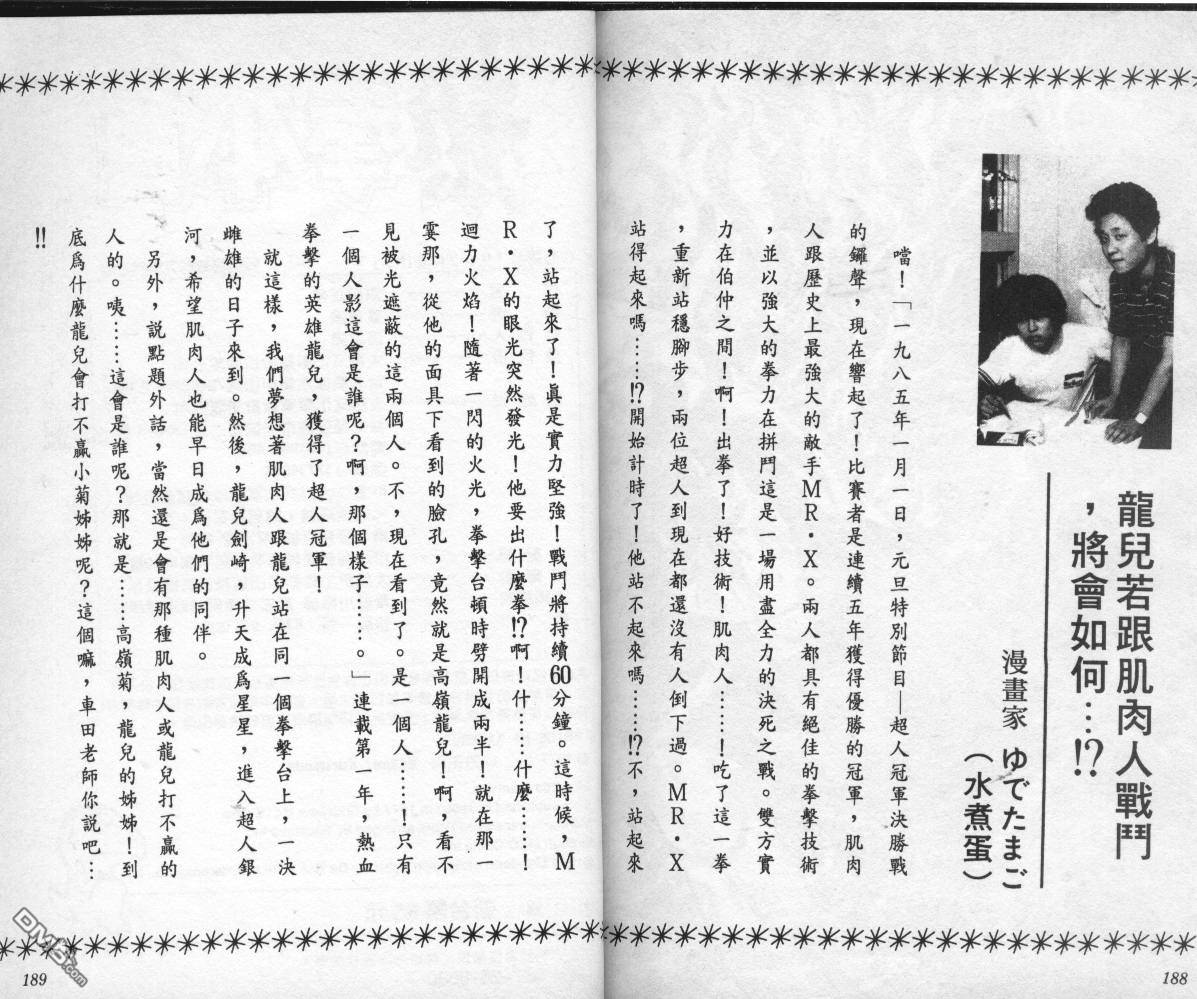 龍兒若跟肌肉人戰鬥
，將會如何…⁉
漫畫家 ゆでたまご
（水煮蛋）
噹！「一九八五年一月一日，元旦特別節目—超人冠軍決勝戰
的鑼聲，現在響起了！比賽者是連續五年獲得優勝的冠軍，肌肉
人跟歷史上最強大的敵手MR·X。兩人都具有絕佳的拳擊技術
，並以強大的拳力在拼鬥這是一場用盡全力的決死之戰。雙方實
力在伯仲之間！啊！出拳了！好技術！肌肉人……！吃了這一拳
，重新站穩腳步，兩位超人到現在都還沒有人倒下過。MR·X
站得起來嗎……⁉開始計時了！他站不起來嗎……⁉不，站起來
了，站起來了！眞是實力堅強！戰鬥將持續60分鐘。這時候，M
R·X的眼光突然發光！他要出什麼拳⁉啊！什……什麼……！
迴力火焰！隨著一閃的火光，拳擊台頓時劈開成兩半！就在那一
霎那，從他的面具下看到的臉孔，竟然就是高嶺龍兒！啊，看不
見被光遮蔽的這兩個人。不，現在看到了。是一個人……！只有
一個人影這會是誰呢？啊，那個樣子……。」連載第一年，熱血
拳擊的英雄龍兒，獲得了超人冠軍！
就這樣，我們夢想著肌肉人跟龍兒站在同一個拳擊台上，一決
雌雄的日子來到。然後，龍兒劍崎，升天成爲星星，進入超人銀
河，希望肌肉人也能早日成爲他們的同伴。
另外，說點題外話，當然還是會有那種肌肉人或龍兒打不贏的
人的。咦……這會是誰呢？那就是……高嶺菊，龍兒的姊姊！到
底爲什麼龍兒會打不贏小菊姊姊呢？這個嘛，車田老師你說吧…
‼
188
189
DM5.com